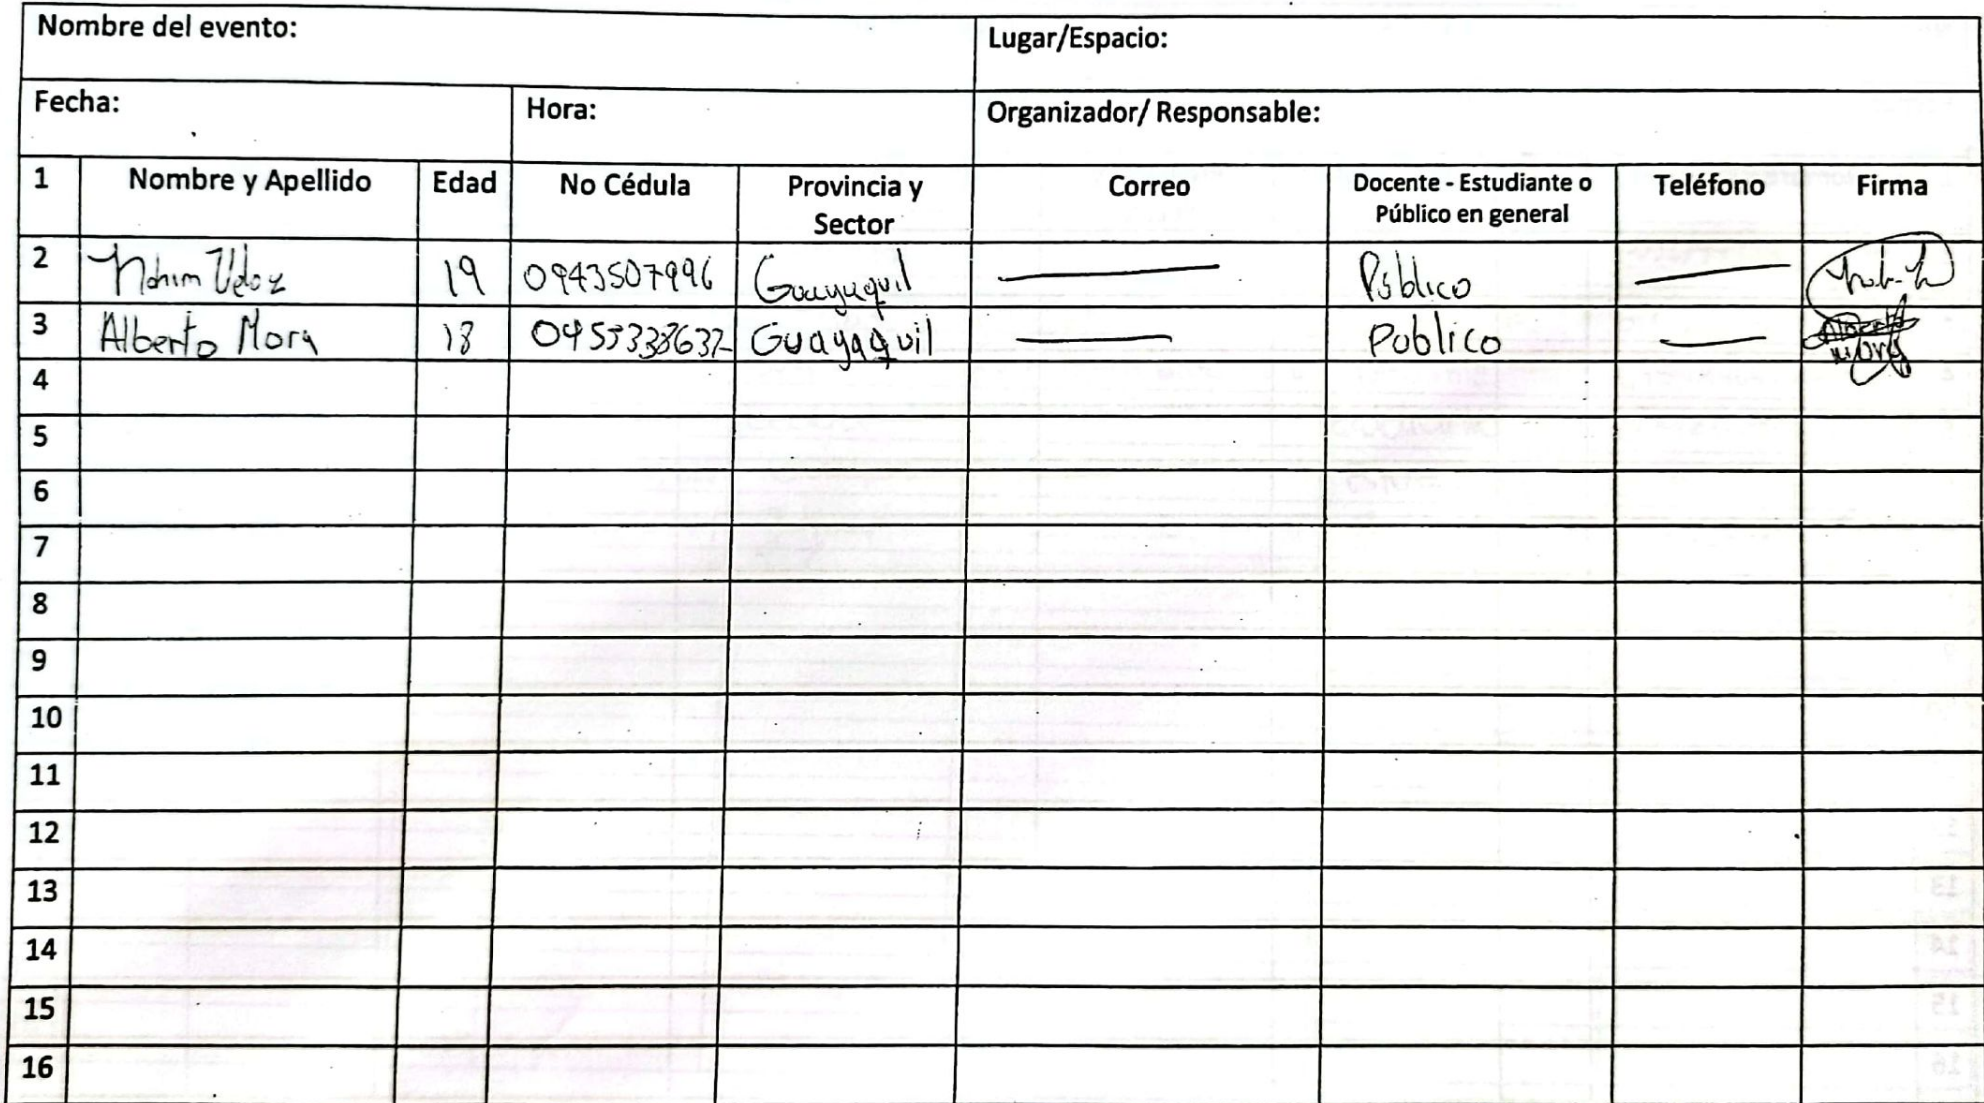 Nombre del evento:
Lugar/Espacio:
Fecha:
Hora:
Organizador/ Responsable:
1 Nombre y Apellido Edad No Cédula Provincia y Sector Correo Docente - Estudiante o Público en general Teléfono Firma
2 Nahim Veloz 19 0943507996 Guayaquil — Público —
3 Alberto Mora 18 Guayaquil — Publico — Alberto Mora
4
5
6
7
8
9
10
11
12
13
14
15
16